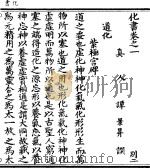 化書卷之一
真人譚景昇撰
道化
紫極宮碑
道之委也虛化神神化氣氣化形形生而萬
物所以塞也道之用也形化氣氣化神神化
虛虛明而萬物所以通也是以古聖人窮通
塞之端得造化之源忘形以養氣忘氣以養
神忘神以養虛虛實相通是謂大同故藏之
為元精用之為萬靈含之為太一放之為太